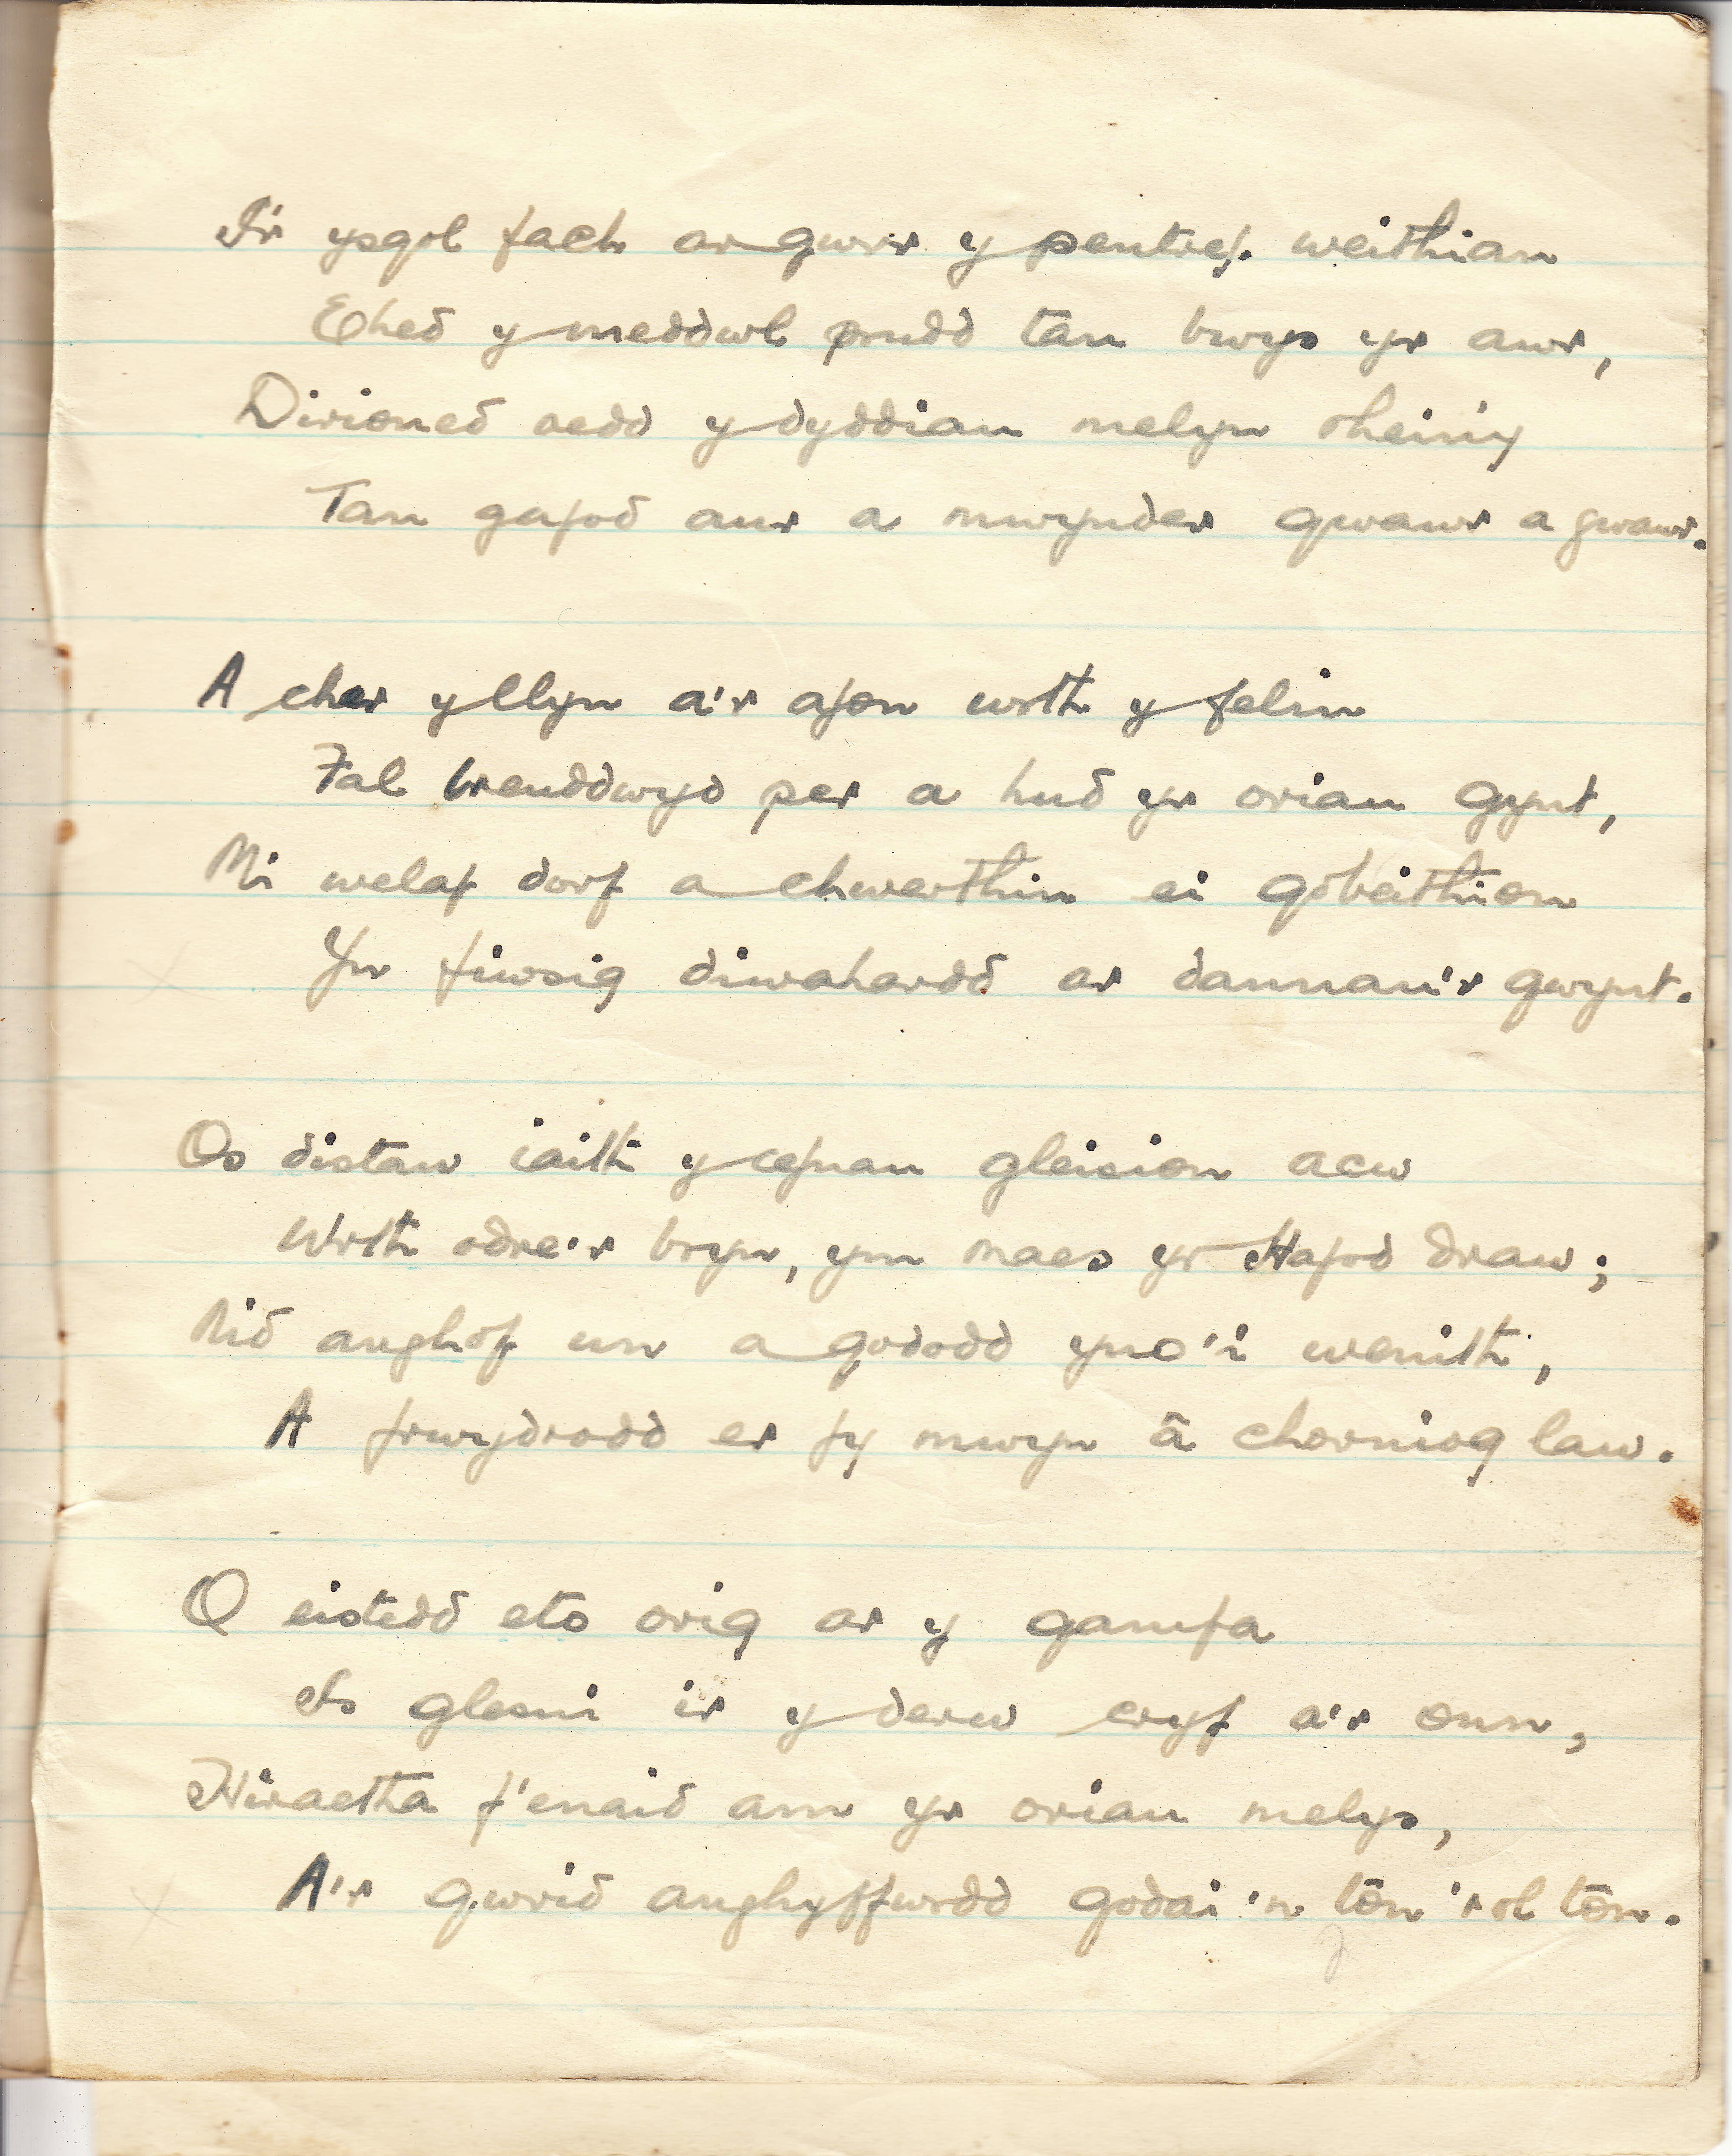 I'r ysgol fach ar gwrr y pentref. weithian
Ehed y meddwl prudd tan bwys yr awr,
Dirioned oedd y dyddiau melyn rheiny
Tan gafod aur a mwynder gwawr a gwawr.
A cher y llyn a'r afon wrth y felin
Fal breuddwyd per a hud yr oriau gynt,
Mi welaf dorf a chwerthin ei gobeithion
Yn fiwsig diwahardd ar dannau'r gwynt.
Os distaw iaith y cefnau gleision acw
Wrth odre'r bryn, ym maes yr Hafod draw;
Nid anghof un a gododd yno'i wenith,
A frwydrodd er fy mwyn â chorniog law.
O eistedd eto orig ar y gamfa
Is glesni ir y derw cryf a'r onn,
Hiraetha f'enaid am yr oriau melys,
A'r gwrid anghyffwrdd godai'n tôn 'rol tôn.